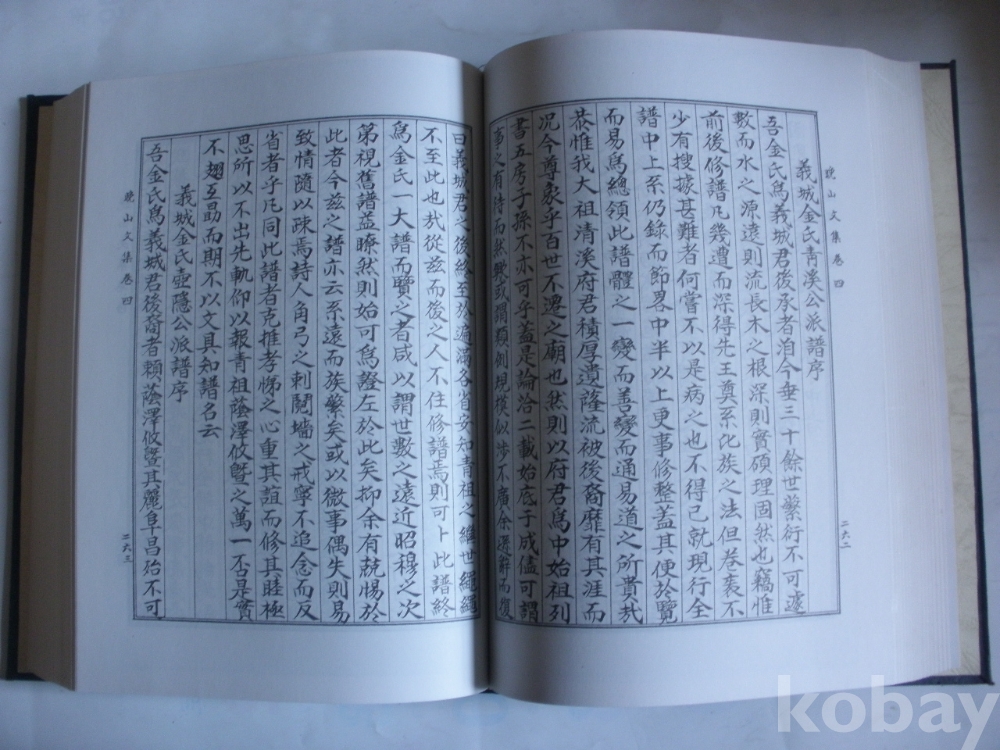 晚山文集卷四
義城金氏青溪公派譜序
吾金氏爲義城君後承者洎今垂三十餘世繁衍不可遽
數而水之源遠則流長木之根深則實碩理固然也竊惟
前後修譜凡幾遭而深得先王奠系比族之法但卷袠不
少有搜據甚難者何嘗不以是病之也不得已就現行全
譜中上系仍錄而節畧中半以上更事修整蓋其便於覽
而易爲總領此譜體之一變而善變而通易道之所貴哉
恭惟我大祖清溪府君積厚遺隆流被後裔靡有其涯而
況今尊象乎百世不遷之廟也然則以府君爲中始祖列
書五房子孫不亦可乎蓋是論洽二載始底于成儘可謂
事之有待而然歟或謂類例規模似涉不廣余遜辭而復
曰義城君之後終至於遍滿各省安知青祖之維世繩繩
不至此也哉從茲而後之人不住修譜焉則可卜此譜終
爲金氏一大譜而覽之者咸以謂世數之遠近昭穆之次
第視舊譜益瞭然則始可爲證左於此矣抑余有兢惕於
此者今茲之譜亦云系遠而族繁矣或以微事偶失則易
致情隨以疎焉詩人角弓之刺鬩墻之戒寧不追念而反
省者乎凡同此譜者克推孝悌之心重其誼而修其睦極
思所以不出先軌仰以報青祖蔭澤攸曁之萬一不是實
不翅互勗而期不以文具知譜名云
義城金氏壺隱公派譜序
吾金氏爲義城君後裔者賴蔭澤攸曁其麗阜昌殆不可
晚山文集卷四
二六二
二六三
kobay